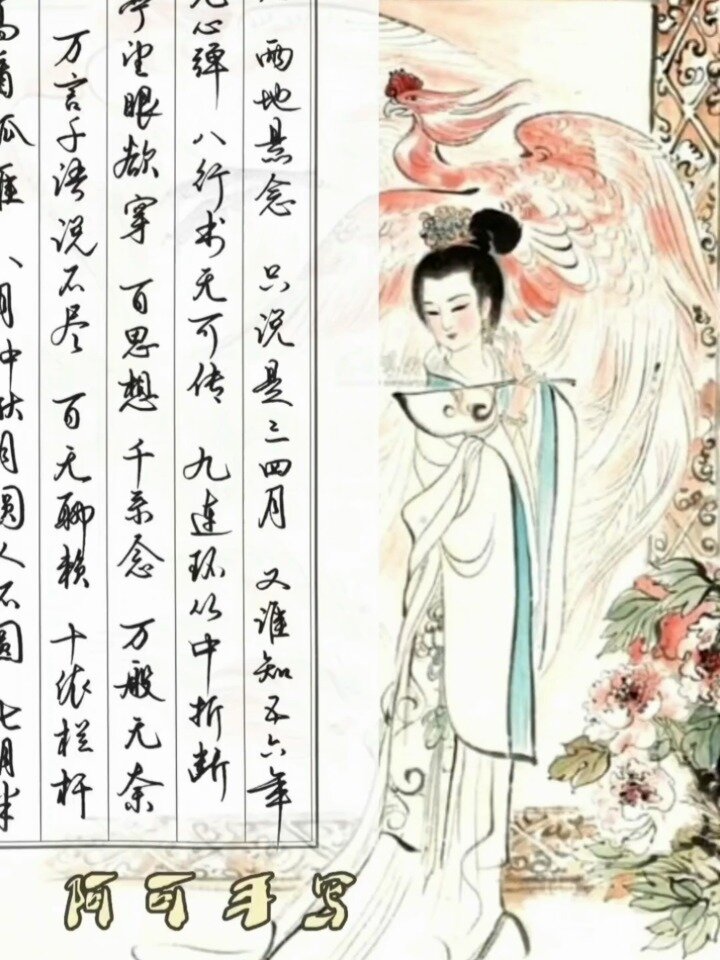 两地悬念 只说是三四月 又谁知五六年
无心弹 八行书无可传 九连环从中折断
亭望眼欲穿 百思想 千系念 万般无奈
万言千语说不尽 百无聊赖 十依栏杆
高看孤雁 八月中秋月圆人不圆 七月半
阿可手写